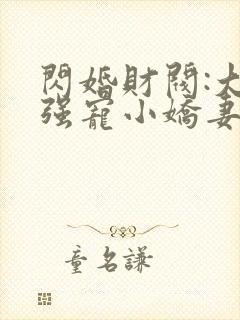 閃婚財閥:大
强寵小嬌妻
童名謙